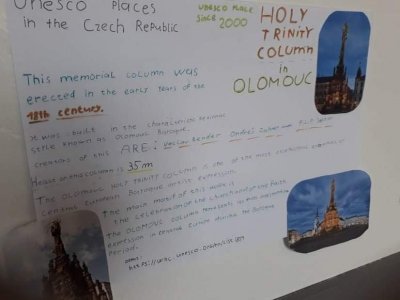 Unesco Places
in the Czech Republic
UNESCO PLACE
SINCE 2000
HOLY
TRINITY
COLUMN
in
OLOMOUC
This memorial column was
erected in the early years of the
18th century.
It was built in the characteristic regional
style known as Olomouc Baroque.
creators of this ARE: Václav Render
Height of the column is 35m
The OLOMOUC HOLY TRINITY COLUMN is one of the most
Central European Baroque artist expression.
The main motif of this work is
the celebration of the church and of the faith
The OLOMOUC COLUMN represents
expression in central Europe during the Baroque
Period.